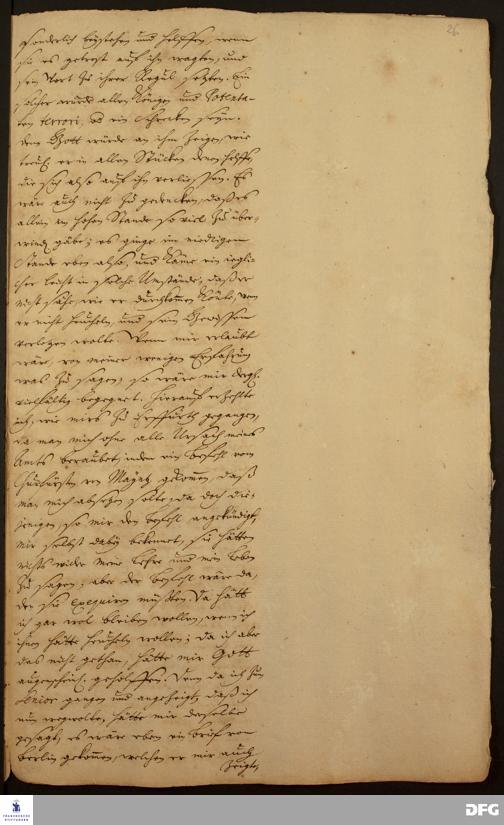 26
sonderlich beystehen und helffen, wenn
sie es getrost auf ihn wagten, und
sein Wort zu ihrer Regul setzten. Ein
solcher würde allen Königen und Potenta-
ten terrori, ein Schrecken seyn.
denn Gott würde an ihm zeigen, wie
treu er in allen Stücken denen helffe,
die sich also auf ihn verliessen. Es
wäre auch nicht zu gedencken, daß es
allein im hohen Stande so viel zu über-
winden gäbe; es ginge im niedrigen
Stande eben also, und käme ein iegli-
cher leicht in solche Umstände, daß er
nicht sähe, wie er durchkommen könte, wenn
er nicht heucheln, und sein Gewissen
verletzen wolte. Wenn mir erlaubt
wäre, von meiner wenigen Erfahrung
was zu sagen, so wäre mir dergl.
vielfältig begegnet. Hierauf erzehlte
ich, wie mirs zu Erffurth gegangen,
da man mich ohne alle Ursach meines
Amts beraubet, indem ein befehl vom
Churfürsten von Mäyntz gekommen, daß
man mich absetzen solte, da doch die-
jenigen, so mir den befehl angekündigt,
mir selbst dabey bekennet, sie hätten
nichts wider meine Lehre und mein Leben
zu sagen; aber der befehl wäre da,
den sie exequiren müsten. Da hätte
ich gar wol bleiben wollen, wenn ich
ihnen hätte heucheln wollen; da ich aber
das nicht gethan, hätte mir Gott
augenscheinl. geholffen. Denn da ich zum
Senior gangen und angezeigt, daß ich
nun weg wolte, hätte mir derselbe
gesagt, es wäre eben ein brief von
Berlin gekommen, welchen er mir auch
zeigte,
FRANCKESCHE
STIFTUNGEN
DFG